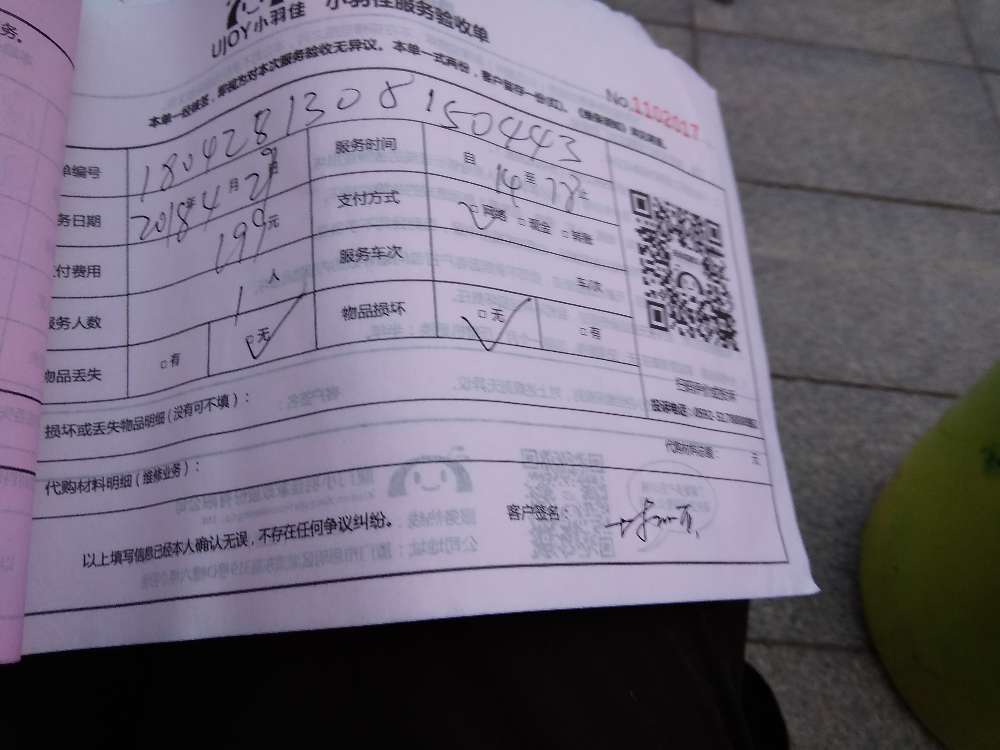 务。
UJOY小羽佳 小羽佳服务验收单
本单一经候签，即视方对本次服务验收无异议。本单一式两份，客户留存一份
No.1102017
单编号 18042813081504443
务日期 2018年4月29日 服务时间 自14至18止
付费用 199元 支付方式 □网络 □现金 □转账
服务人数 1人 服务车次 车/次
物品丢失 □有 □无 物品损坏 □无 □有
扫码评价或投诉
投诉电话：0592-
损坏或丢失物品明细（没有可不填）：
代购材料明细（维修业务）： 代购材料总额： 元
以上填写信息已经本人确认无误，不存在任何争议纠纷。 客户签名：